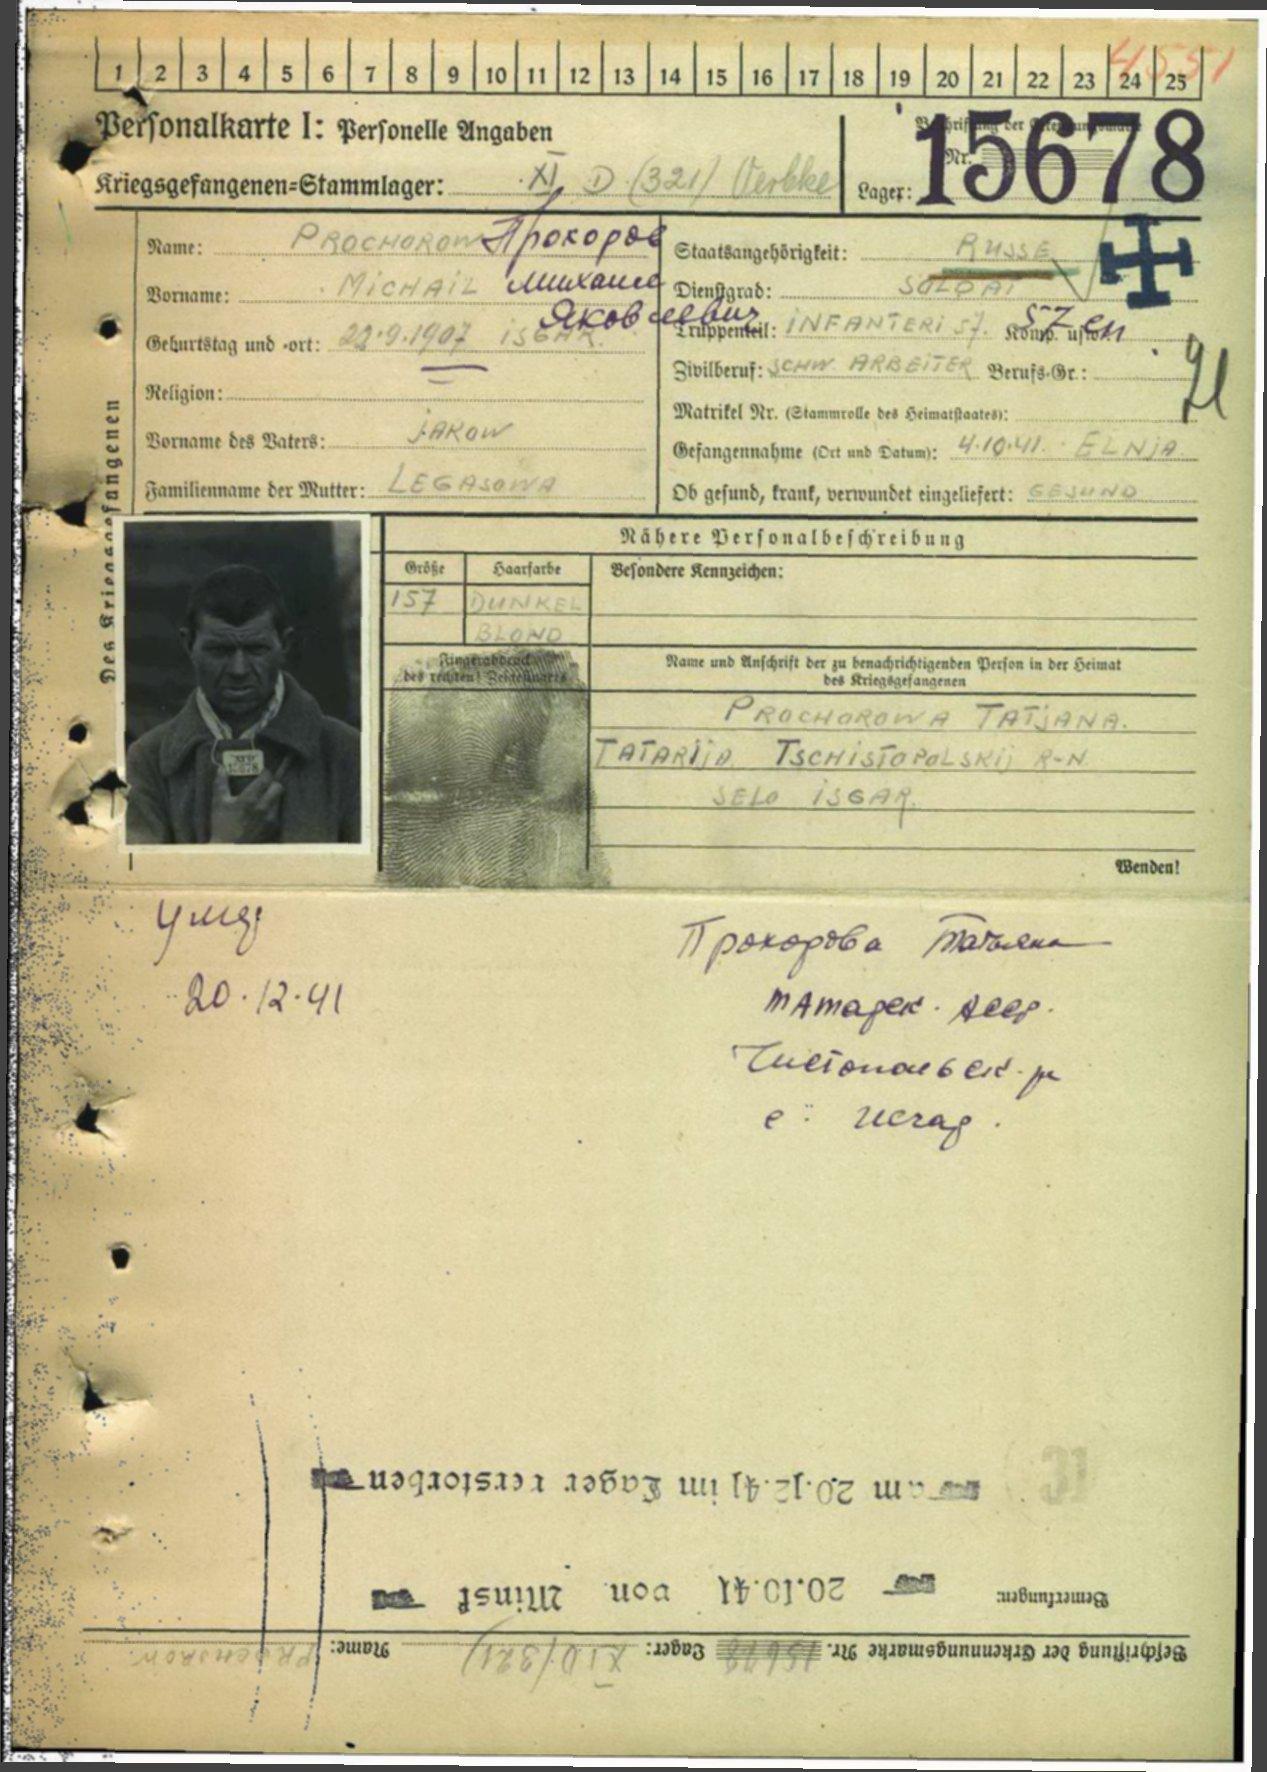 4551
1 2 3 4 5 6 7 8 9 10 11 12 13 14 15 16 17 18 19 20 21 22 23 24 25
Personalkarte I: Personelle Angaben
Kriegsgefangenen-Stammlager: XI D (321) Oerbke
Nr.
Lager:
15678
Name: PROCHOROW Прохоров
Vorname: MICHAIL Михаил
Яковлевич
Geburtstag und -ort: 22.9.1907 ISGAR.
Religion:
Vorname des Vaters: JAKOW
Familienname der Mutter: LEGASOWA
Staatsangehörigkeit: RUSSE
Dienstgrad: SOLDAT
Truppenteil: INFANTERI 57. Komp. usw.:
Zivilberuf: SCHW. ARBEITER Berufs-Gr.:
Matrikel Nr. (Stammrolle des Heimatstaates):
Gefangennahme (Ort und Datum): 4.10.41. ELNJA
Ob gesund, krank, verwundet eingeliefert: GESUND
Des Kriegsgefangenen
Nähere Personalbeschreibung
Größe Haarfarbe Besondere Kennzeichen:
157 DUNKEL
BLOND
Fingerabdruck
des rechten! Zeigefingers
Name und Anschrift der zu benachrichtigenden Person in der Heimat
des Kriegsgefangenen
PROCHOROWA TATJANA.
TATARIJA TSCHISTOPOLSKIJ R-N
SELO ISGAR.
Wenden!
20.12.41
Прохорова Татьяна
Татарск. АССР.
Чистопольск. р
с. Исгар.
am 20.12.41 im Lager verstorben
Bemerkungen: 20.10.41 von Minsk
Beschriftung der Erkennungsmarke Nr. 15678 Lager: XI D (321) Name: